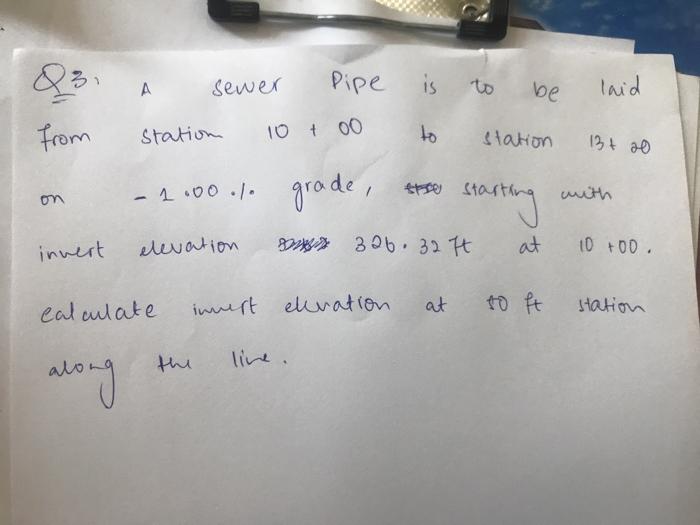 Q3. A sewer Pipe is to be laid
from station 10 + 00 to station 13+ 20
on - 1.00 .1. grade, starting with
invert elevation 326.32 ft at 10 +00.
calculate invert elevation at 50 ft station
along the line.